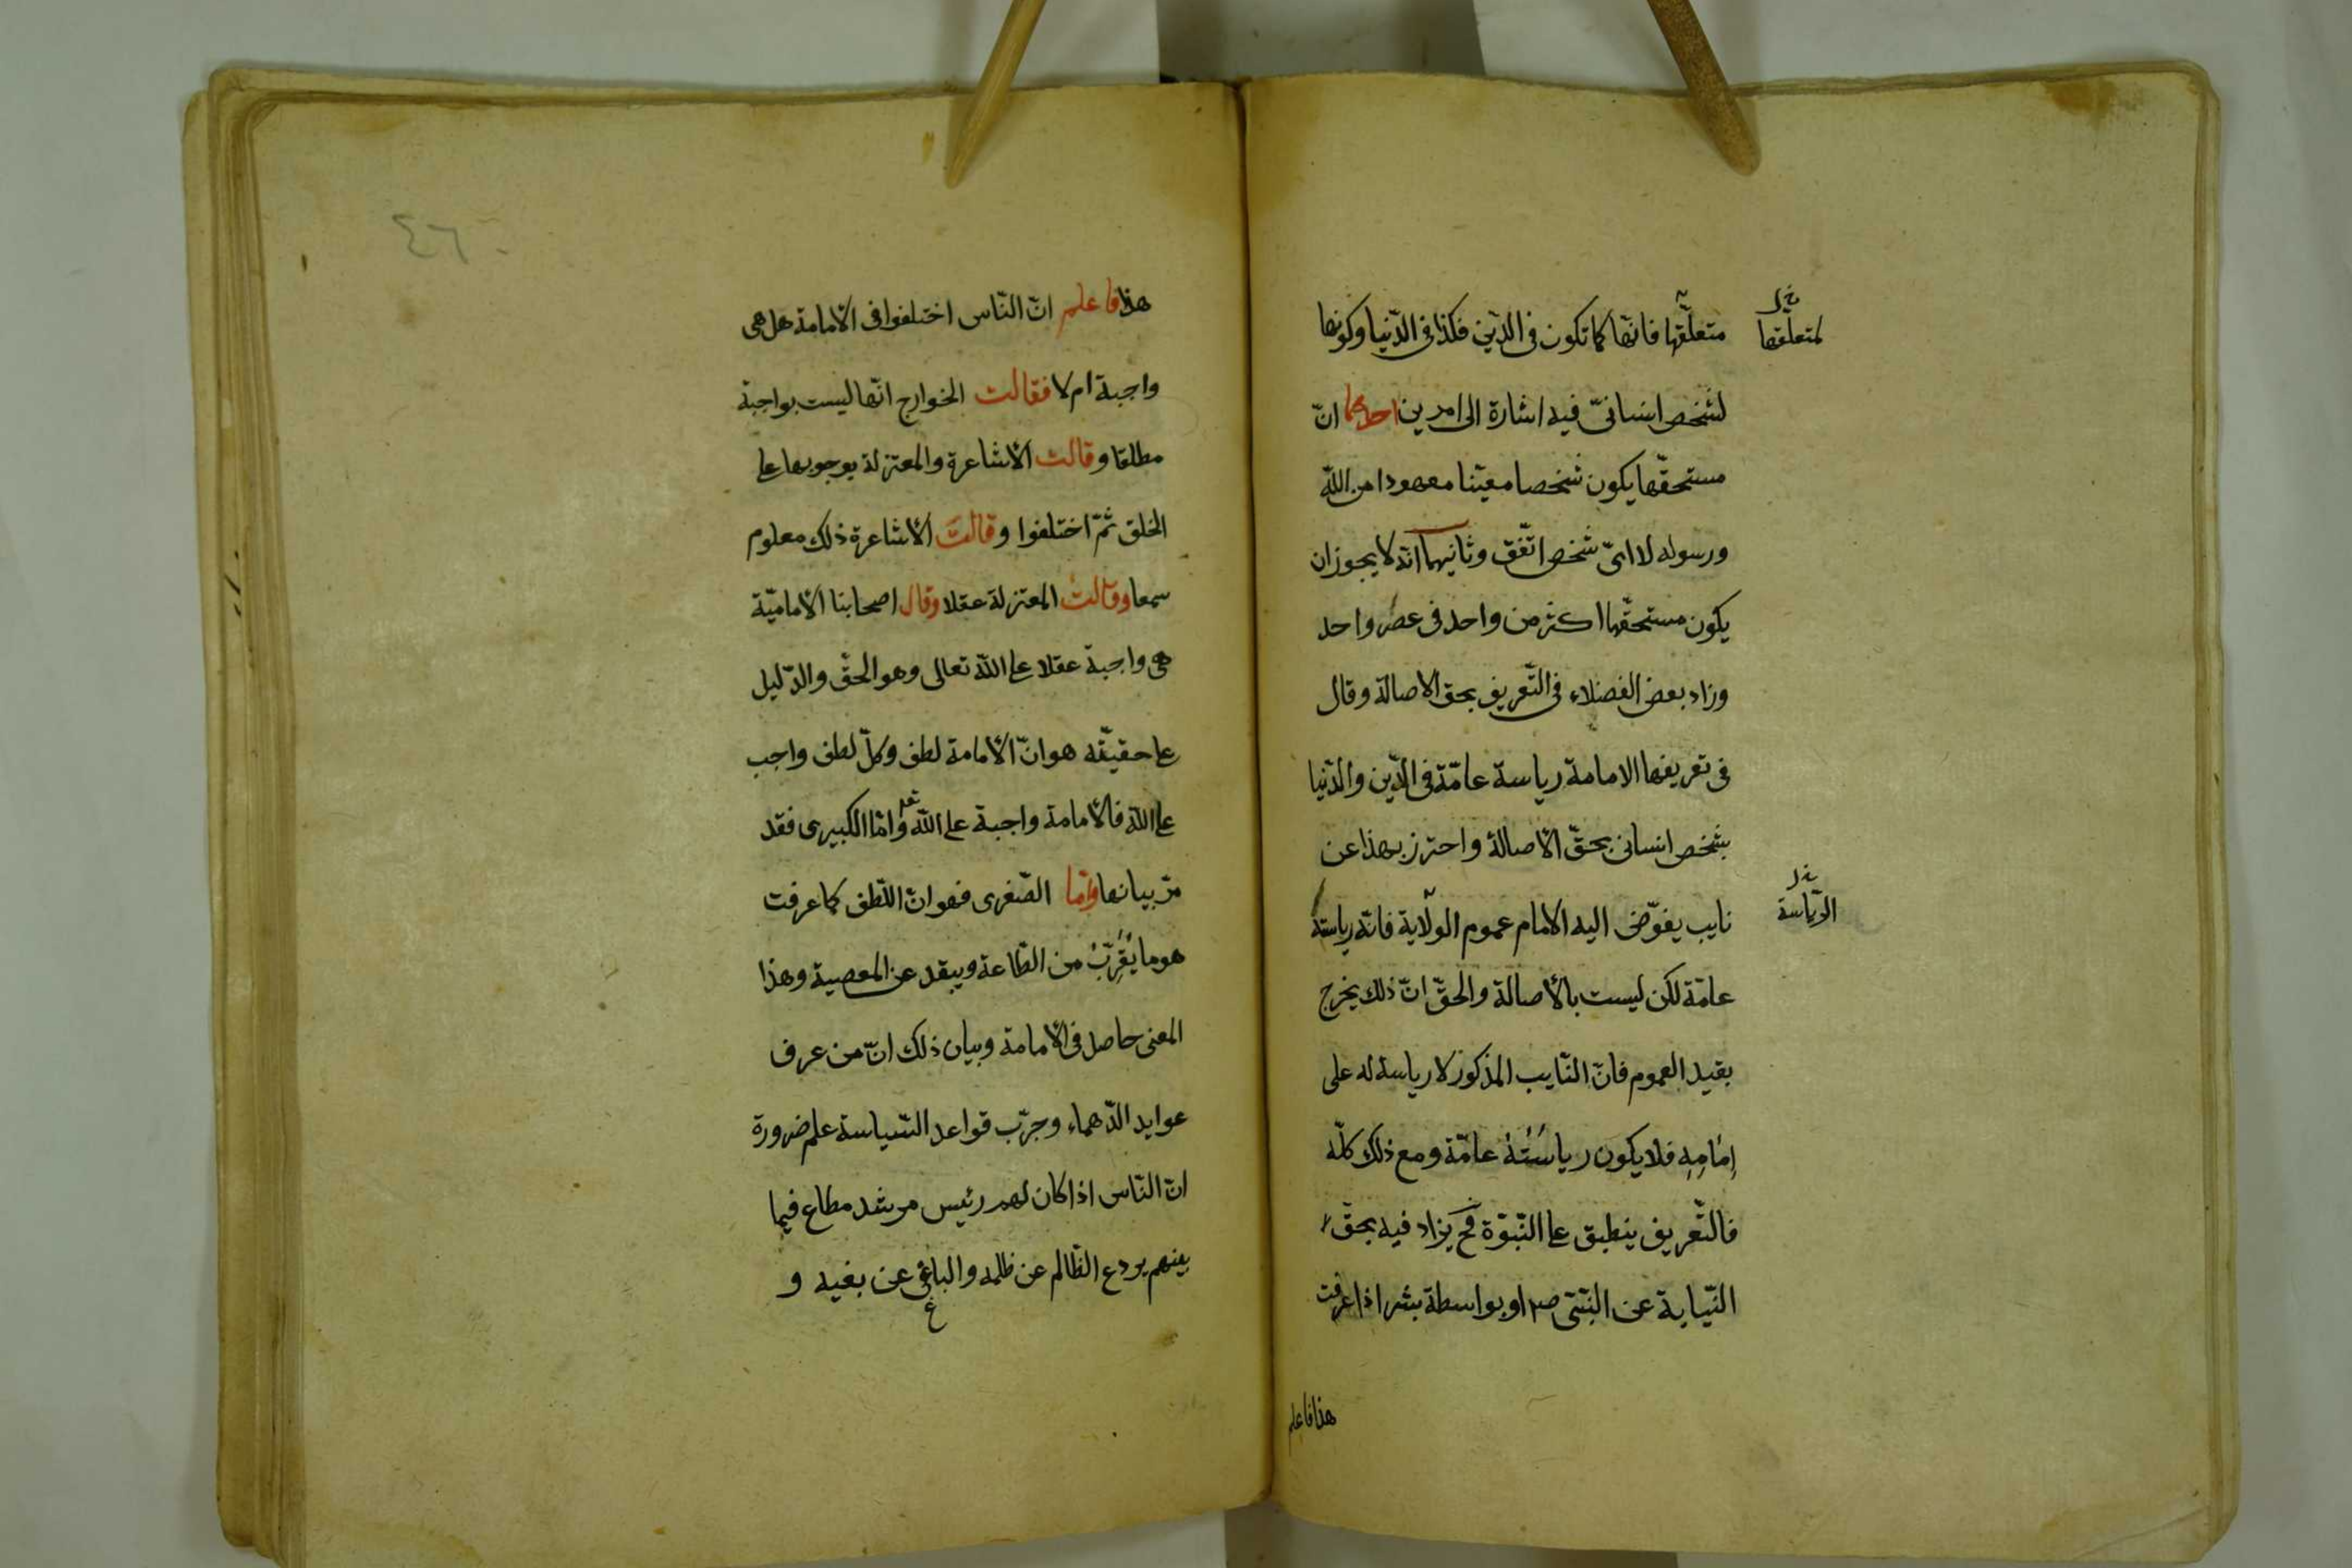 متعلّقها فانّها كما تكون فى الدّين فكذا فى الدّنيا وكونها
لمتعلّقها
لشخص انسانىّ فيه اشارة الى امرين احدهما انّ
مستحقّها يكون شخصا معيّنا معهودا من اللّه
ورسوله لا اىّ شخص اتّفق وثانيهما انّه لا يجوز ان
يكون مستحقّها اكثر من واحد فى عصر واحد
وزاد بعض الفضلاء فى التّعريف بحق الاصالة وقال
فى تعريفها الامامة رياسة عامّة فى الدّين والدّنيا
بشخص انسانى بحقّ الأصالة واحترز بهذا عن
نايب يفوّض اليه الامام عموم الولاية فانّه رياسته
الرّياسة
عامّة لكن ليست بالأصالة والحقّ انّ ذلك يخرج
بقيد العموم فانّ النّايب المذكور لا رياسة له على
إمَامِهِ فلا يكون رياسَتُهُ عامّة ومع ذلك كلّه
فالتّعريف ينطبق على النّبوّة فح يزاد فيه بحقّ
النّيابة عن النّبىّ ص او بواسطة بشر اذا عرفت
هذا فاعلم
٤٦
هذا فاعلم انّ النّاس اختلفوا فى الأمامة هل هى
واجبة ام لا فقالت الخوارج انّها ليست بواجبة
مطلقا وقالت الأشاعرة والمعتزلة بوجوبها على
الخلق ثمّ اختلفوا وقالت الأشاعرة ذلك معلوم
سمعا وقالت المعتزلة عقلا وقال اصحابنا الأماميّة
هى واجبة عقلا على اللّه تعالى وهو الحقّ والدّليل
على حقيّته هو انّ الأمامة لطف وكلّ لطف واجب
على اللّه فالأمامة واجبة على اللّه تعه وامّا الكبيرى فقد
مرّ بيانها وامّا الصّغرى فهو انّ اللّطف كما عرفت
هو ما يُقَرِّبُ من الطّاعة ويبعد عن المعصية وهذا
المعنى حاصل فى الأمامة وبيان ذلك انّ من عرف
عوايد الدّهماء وجرّب قواعد السّياسة علم ضرورة
انّ النّاس اذا كان لهم رئيس مرشد مطاع فيما
بينهم يردع الظّالم عن ظلمه والباغى عن بغيه و